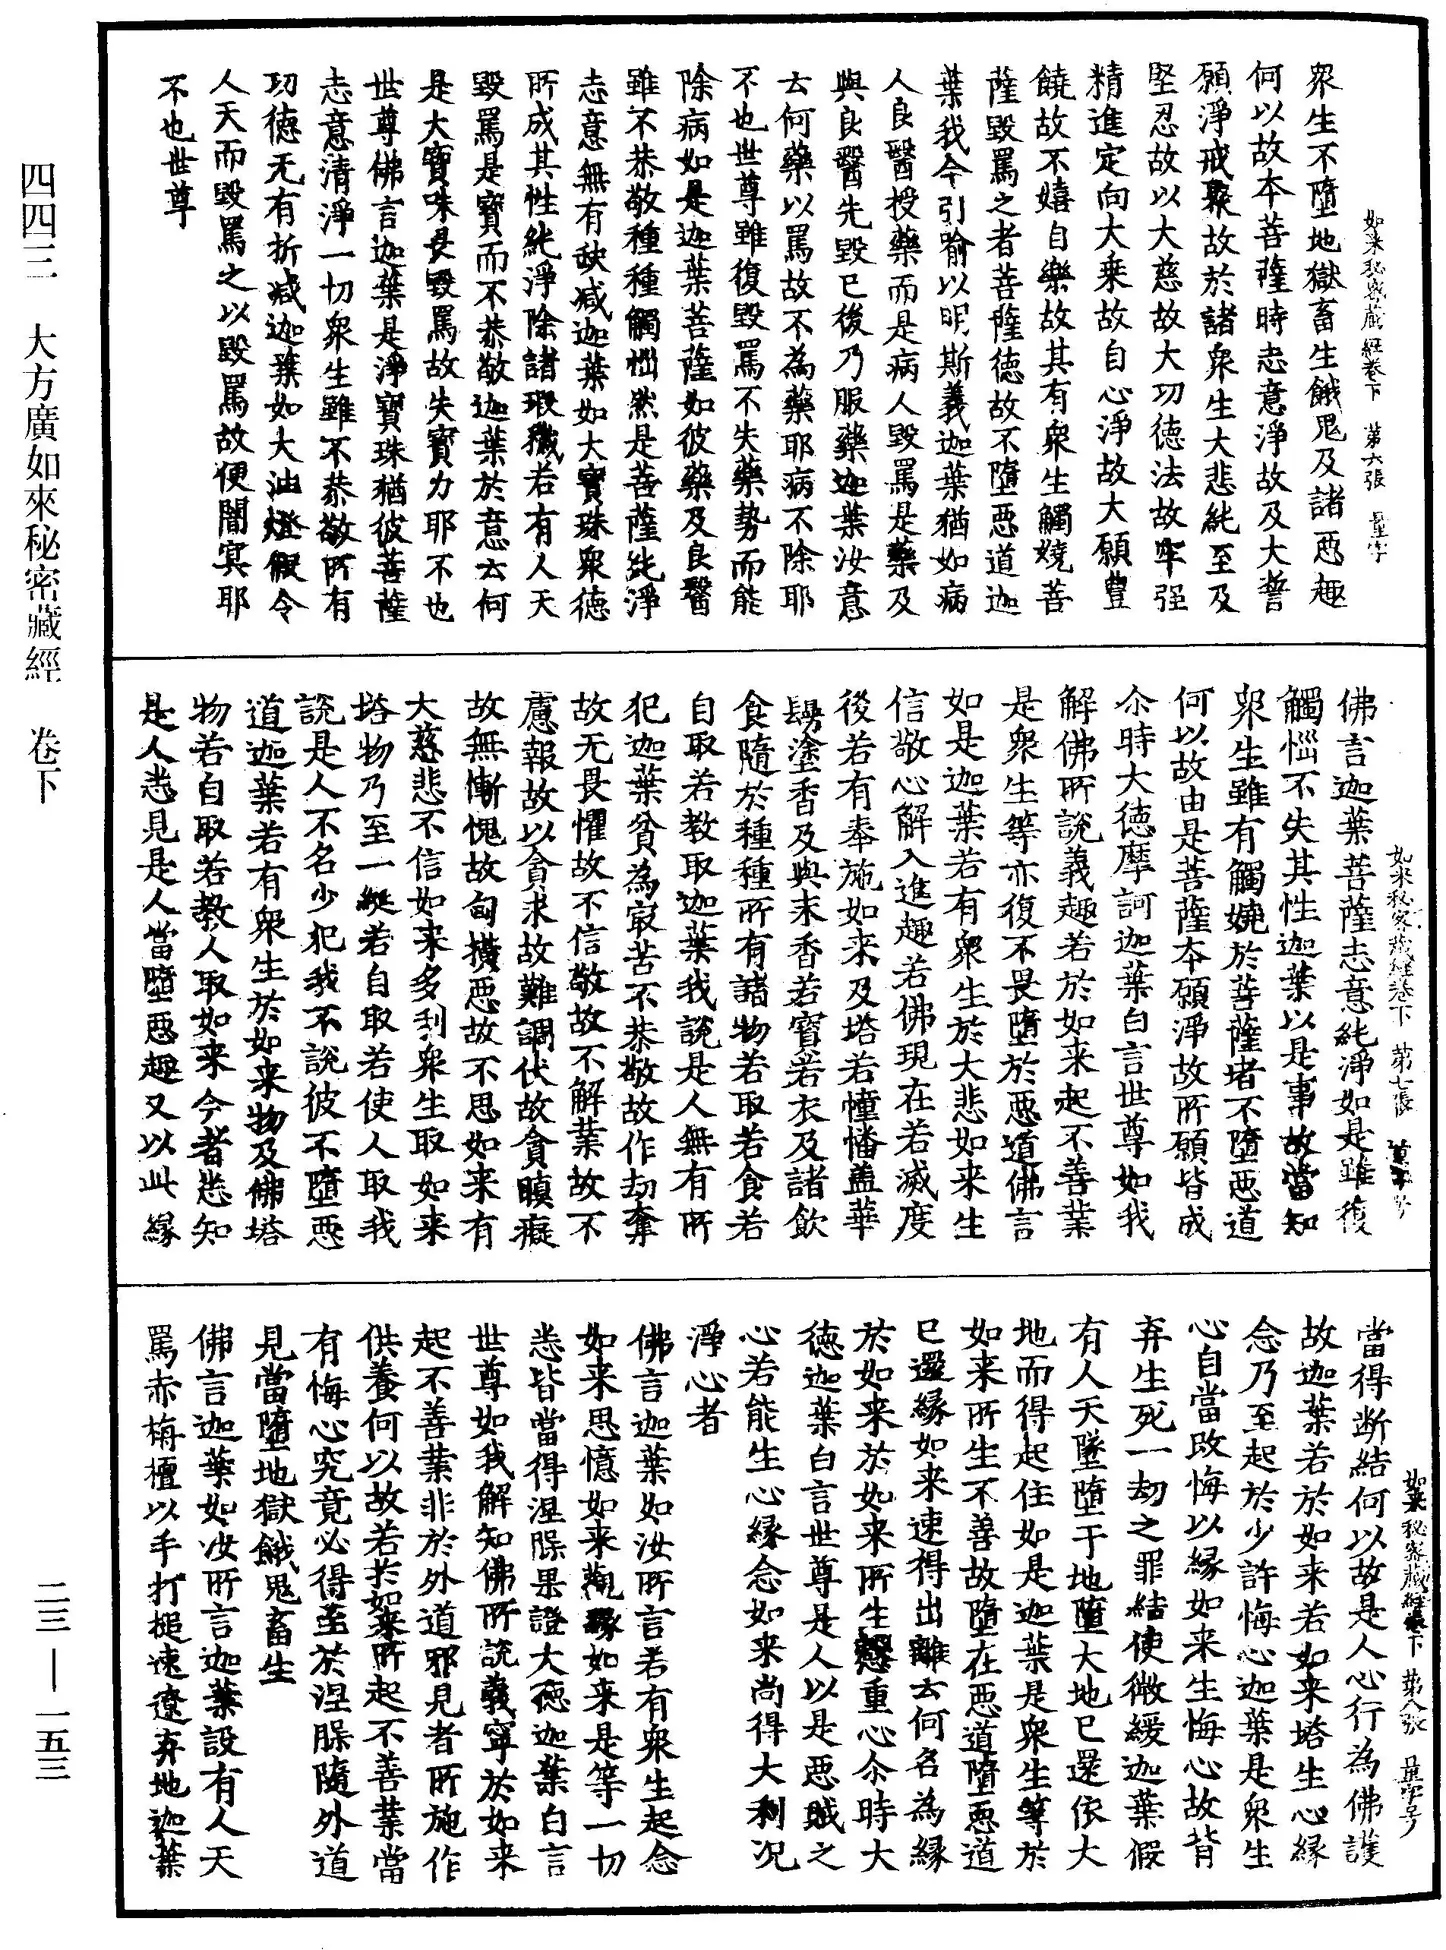 四四三　大方廣如來秘密藏經　卷下
二三—一五三
如来秘密藏經卷下　第六張　量字
衆生不墮地獄畜生餓鬼及諸惡趣
何以故本菩薩時志意淨故及大誓
願淨戒聚故於諸衆生大悲純至及
堅忍故以大慈故大功德法故牢强
精進定向大乗故自心淨故大願豊
饒故不嬉自樂故其有衆生觸嬈菩
薩毀罵之者菩薩德故不墮惡道迦
葉我今引喻以明斯義迦葉猶如病
人良醫授藥而是病人毀罵是藥及
與良醫先毀已後乃服藥迦葉汝意
云何藥以罵故不為藥耶病不除耶
不也世尊雖復毀罵不失藥勢而能
除病如是迦葉菩薩如彼藥及良醫
雖不恭敬種種觸惱然是菩薩純淨
志意無有缺減迦葉如大寶珠衆德
所成其性純淨除諸瑕穢若有人天
毀罵是寶而不恭敬迦葉於意云何
是大寶珠以毀罵故失寶力耶不也
世尊佛言迦葉是淨寶珠猶彼菩薩
志意清淨一切衆生雖不恭敬所有
功德无有折減迦葉如大油燈假令
人天而毀罵之以毀罵故便闇冥耶
不也世尊
如来秘密藏經卷下　第七張　量字号
佛言迦葉菩薩志意純淨如是雖復
觸惱不失其性迦葉以是事故當知
衆生雖有觸嬈於菩薩者不墮惡道
何以故由是菩薩本願淨故所願皆成
尒時大德摩訶迦葉白言世尊如我
解佛所說義趣若於如来起不善業
是衆生等亦復不畏墮於惡道佛言
如是迦葉若有衆生於大悲如来生
信敬心解入進趣若佛現在若滅度
後若有奉施如来及塔若幢幡盖華
鬘塗香及與末香若寶若衣及諸飲
食隨於種種所有諸物若取若食若
自取若教取迦葉我說是人無有所
犯迦葉貧為㝡苦不恭敬故作劫奪
故无畏懼故不信敬故不解業故不
慮報故以貪求故難調伏故貪瞋癡
故無慚愧故匃攘惡故不思如来有
大慈悲不信如来多利衆生取如来
塔物乃至一綖若自取若使人取我
說是人不名少犯我不說彼不墮惡
道迦葉若有衆生於如来物及佛塔
物若自取若教人取如来今者悉知
是人悉見是人當墮惡趣又以此緣
如来秘密藏經卷下　第八張　量字号
當得斷結何以故是人心行為佛護
故迦葉若於如来若如来塔生心緣
念乃至起於少許悔心迦葉是衆生
心自當改悔以緣如来生悔心故背
弃生死一劫之罪結使微緩迦葉假
有人天墜墮于地墮大地已還依大
地而得起住如是迦葉是衆生等於
如来所生不善故墮在惡道墮惡道
已還緣如来速得出離云何名為緣
於如来於如来所生慇重心尒時大
德迦葉白言世尊是人以是惡賊之
心若能生心緣念如来尚得大利況
淨心者
佛言迦葉如汝所言若有衆生起念
如来思憶如来觀緣如来是等一切
悉皆當得涅槃果證大德迦葉白言
世尊如我解知佛所說義寧於如来
起不善業非於外道邪見者所施作
供養何以故若於如来所起不善業當
有悔心究竟必得至於涅槃隨外道
見當墮地獄餓鬼畜生
佛言迦葉如汝所言迦葉設有人天
罵赤栴檀以手打搥速遼弃地迦葉